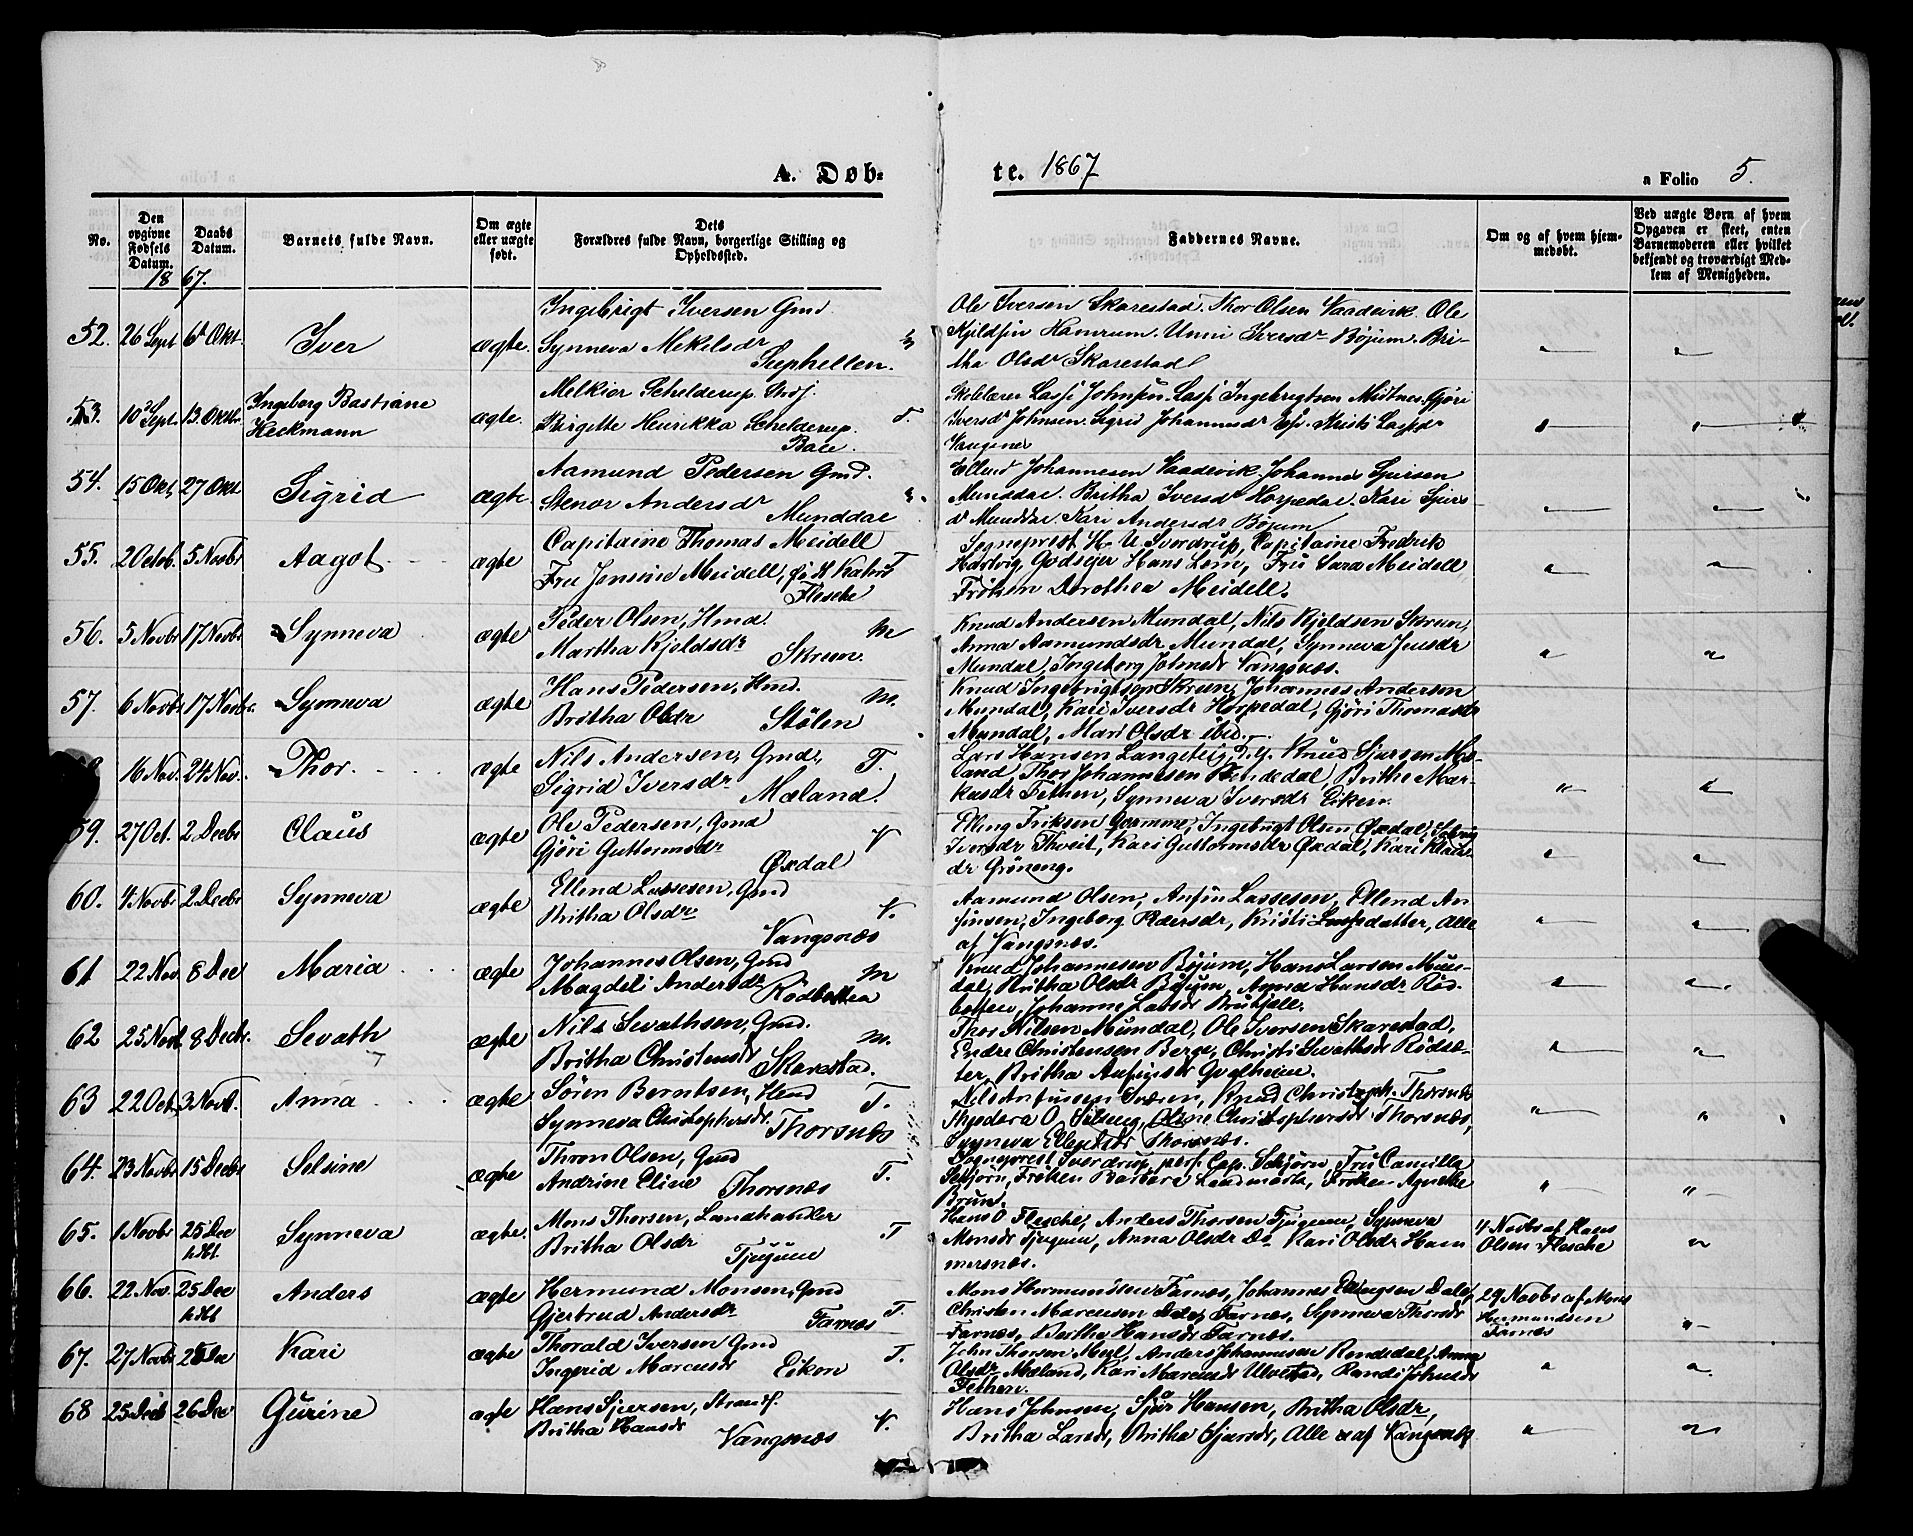 A. Døb-
te. 1867
a Folio 5.
No.
Den opgivne Fødsels Datum.
Daabs Datum.
Barnets fulde Navn.
Om ægte eller uægte født.
Dets Forældres fulde Navn, borgerlige Stilling og Opholdssted.
Faddernes Navne.
Om og af hvem hjemmedøbt.
Ved uægte Børn af hvem Opgaven er skeet, enten Barnemoderen eller hvilket bekjendt og troværdigt Medlem af Menigheden.
1867.
52. 26 Sept 6t Okt. Iver ægte.
Ingebrigt Iversen Gmd.
Synneva Mikelsdr
Suphellen.
Ole Iversen Skarestad. Thor Olsen Vaadevik. Ole
Kjeldsen Hamrum. Unni Iversdr Bøjum. Bri-
tha Olsdr Skarestad
53. 10 Sept. 13. Oktbr Ingeborg Bastiane
Heckmann ægte.
Melkior Schelderup
Birgitte Henrikka Schelderup.
Bale. T.
Lasse Johnsen. Lasse Ingebrigtsen Gjøri
Iversdr Johnsen. Sigrid Johannesdr Kristi Lassedr
Vangsnes
54. 15 Okt. 27 Okt Sigrid ægte.
Aamund Pedersen Gmd.
Stenor Andersdr
Munddal
Ellend Johannesen Vaadevik. Johannes Sjursen
Mundal. Britha Iversdr Horpedal. Kari Sjurs
dr Munddal. Kari Andersdr Bøjum
55. 2 Octob. 5 Novbr Aagot ægte
Capitaine Thomas Meidell
Fru Jensine Meidell,
Flesche T
Sogneprest H. U. Sverdrup, Capitaine Fredrik
Hartvig, Godseyer Hans Lem, Fru Sara Meidell,
Frøken Dorothea Meidell.
56. 5 Novbr 17 Novbr Synneva ægte
Peder Olsen, Hmd.
Martha Kjeldsdr
Skreen. M
Knud Andersen Mundal, Nils Kjeldsen Skreen,
Anna Aamundsdr Mundal, Synneva Jensdr
Mundal, Ingeborg Johnsdr Vangsnæs.
57. 6 Novbr 17 Novbr. Synneva ægte
Hans Pedersen, Hmd.
Britha Olsdr
Stølen M.
Knud Ingebrigtson Skreen, Johannes Andersen
Mundal, Kari Iversdr Horpedal, Gjøri Thomasdr
Mundal, Mari Olsdr ibid.
16 Nov. 24 Nov. Thor ægte
Nils Andersen, Gmd,
Sigrid Iversdr
Mæland. T.
Lars Hansen Langeteig, Knud Sjursen Mæ-
land, Thor Johannesen Rendedal, Britha Mar-
kusdr Fethen, Synneva Iversdr Eiken
59. 27 Oct. 2 Decbr Claus ægte
Ole Pedersen, Gmd
Gjøri Guttormsdr
Øxdal V
Elling Eriksen Ingebrigt Olsen Øxdal,
Iversdr Thveit, Kari Guttormsdr Øxdal, Kari Klaus-
dr Grøneng.
60. 4 Novbr 2 Decbr Synneva ægte
Ellend Lassesen, Gmd
Britha Olsdr
Vangsnæs V.
Aamund Olsen, Anfin Lassesen, Ellend An-
finsen, Ingeborg Pedersdr, Kristi Lassedatter, Alle
af Vangsnæs.
61 22 Nov 8 Dec Maria ægte
Johannes Olsen, Gmd
Magdeli Andersdr
Rødbotten M
Knud Johannesen Bøjum, Hans Larsen Mun-
dal, Britha Olsdr Bøjum, Anna Hansdr Rød-
botten, Johanne Larsdr
62 25 Novb 8 Decbr. Sevath ægte
Nils Sevathsen, Gmd.
Britha Christensdr
Skarestad. M.
Thor Nilsen Mundal, Ole Iversen Skarestad,
Endre Christensen Berge, Christi Sevathsdr Rødsæ-
ter, Britha Anfinsdr
63 22 Oct. 3 Novb. Anna ægte
Søren Berntsen, Hmd
Synneva Christophersdr
Thorsnæs T.
Nils Anfinsen Sværen, Knud Christoph. Thorsnæs
Thedora O. Oline Christophersdr Thorsnæs,
Synneva Ellendsdr Thorsnæs.
64. 23 Novbr 15 Decbr Selsine ægte
Thron Olsen, Gmd
Andrine Eline
Thorsnæs T.
Sogneprest Sverdrup, pers. Cap. Sebjørn, Fru Camilla
Sebjørn, Frøken Barbara Landmark, Frøken Agnethe
Brun.
65. 1 Novbr 25 Dec
Synneva ægte.
Mons Thorsen, Landhandler
Britha Olsdr
Tjugum T
Hans O. Flesche, Anders Thorsen Tjugum, Synneva
Monsdr Tjugum, Anna Olsdr Do Kari Olsdr Ham
mersnæs.
4 Novbr af Hans
Olsen Flesche
66. 22 Nov. 25 Dec
Anders ægte
Hermund Monsen, Gmd
Gjertrud Andersdr
Farnæs T.
Mons Hermundsen Farnæs, Johannes Ellingsen Dale,
Christen Marcusen Dale, Farnæs, Synneva Thorsdr
Farnæs, Britha Hansdr Farnæs.
29 Novbr af Mons
Hermundsen
Farnæs
67. 27 Novbr 25 Dec Kari ægte
Thorald Iversen Gmd
Ingerid Marcusdr
Eiken T.
John Thorsen Anders Johannesen Rendedal, Anna
Olsdr Mæland, Kari Marcusdr Ulvestad, Randi Johnsdr
Fethen.
68 25 Decb 26 Dec Gurine ægte
Hans Sjursen, Strands.
Britha Hansdr
Vangsnæs V.
Hans Johnsen, Sjur Hansen, Britha Olsdr,
Britha Larsdr, Britha Sjursdr, Alle af Vangsnæs